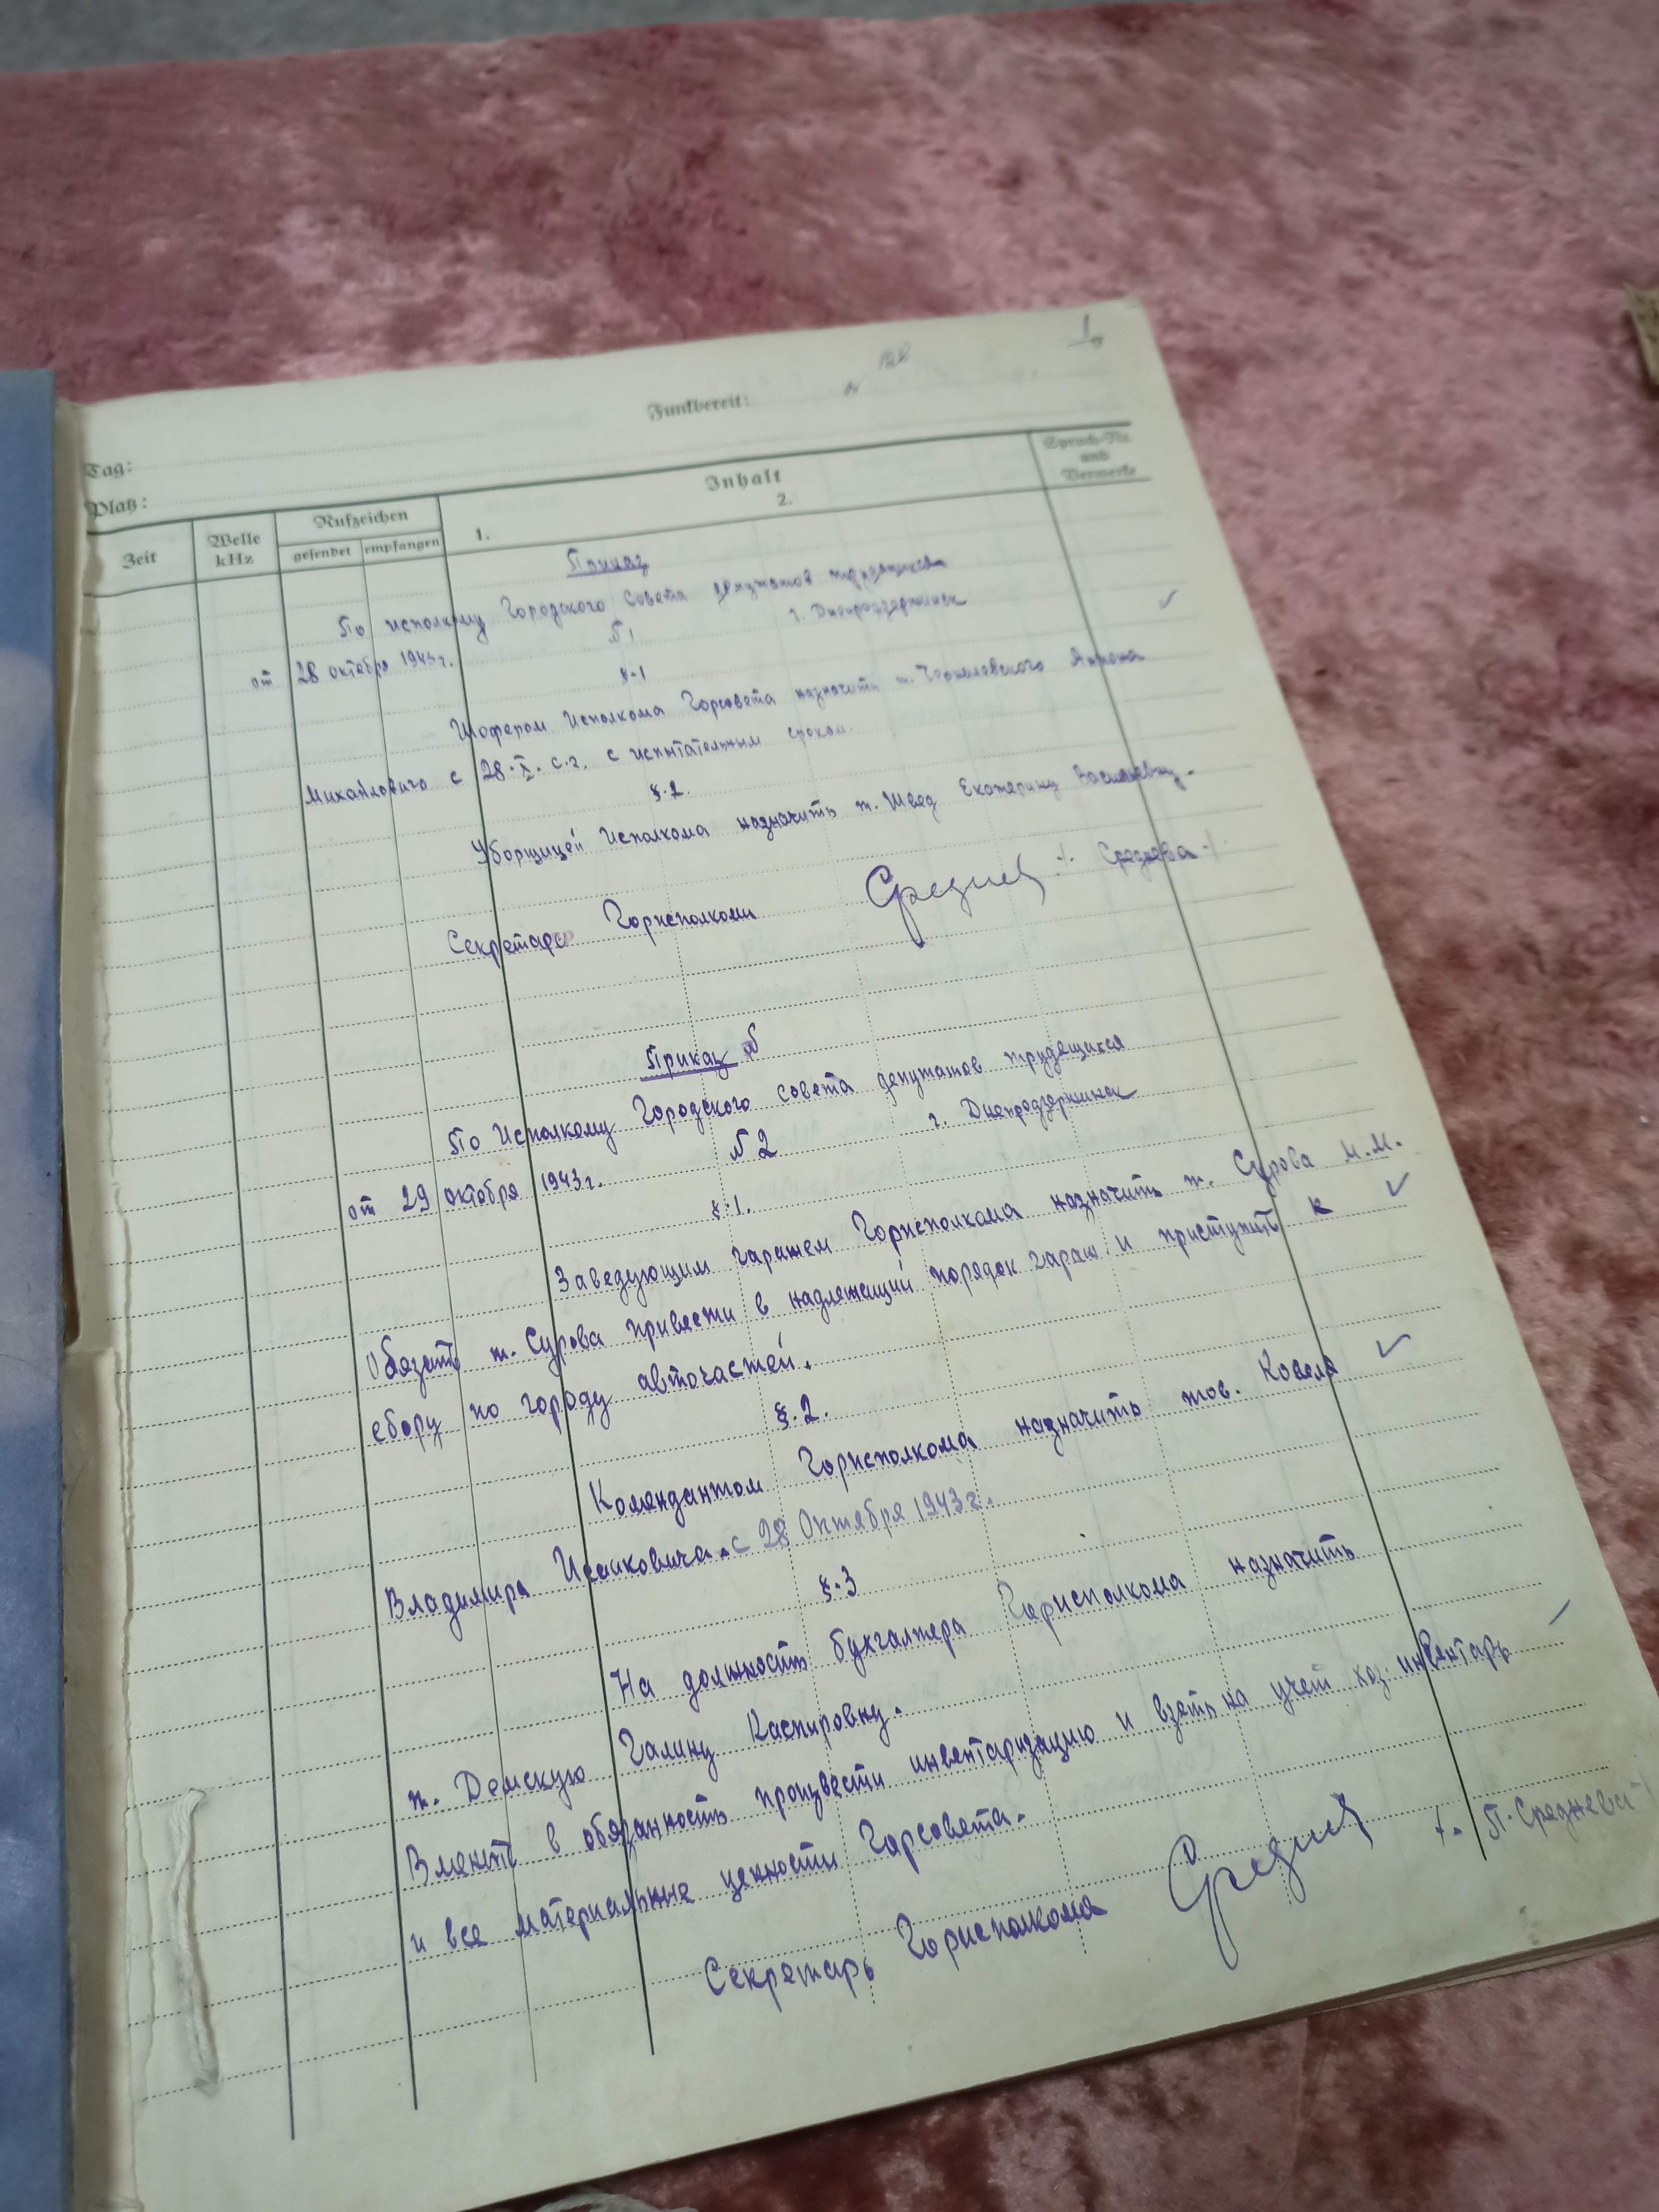 Funkbereit:
Tag:
Platz:
Zeit
Welle kHz
Rufzeichen
gesendet empfangen
Inhalt
1. 2.
Spruch-Nr. und Vermerke
Приказ
По исполкому Городского Совета депутатов трудящихся
г. Днепродзержинск
№1
от 28 октября 1943г.
§.1
Шофером Исполкома Горсовета назначить т. Антона
Михайловича с 28.X. с.г. с испытательным сроком.
§.2.
Уборщицей Исполкома назначить т. Швед Екатерину Васильевну.
Секретарь Горисполкома Среднев /. Среднева /
Приказ №
По Исполкому Городского Совета депутатов трудещихся
г. Днепродзержинск
от 29 октября 1943г. №2
§.1.
Заведующим гаражем Горисполкома назначить т. Сурова М.М.
Обязать т. Сурова привести в надлежищий порядок гараж и приступить к
сбору по городу авточастей.
§.2.
Комендантом Горисполкома назначить тов. Ковеля
Владимира с 28 Октября 1943г.
§.3
На должность бухгалтера Горисполкома назначить
т. Галину Каспировну.
Вменить в обязанность произвести инвентаризацию и взять на учет хоз. инвентарь
и все материальные ценности Горсовета.
Секретарь Горисполкома Среднев /. П. Среднева /